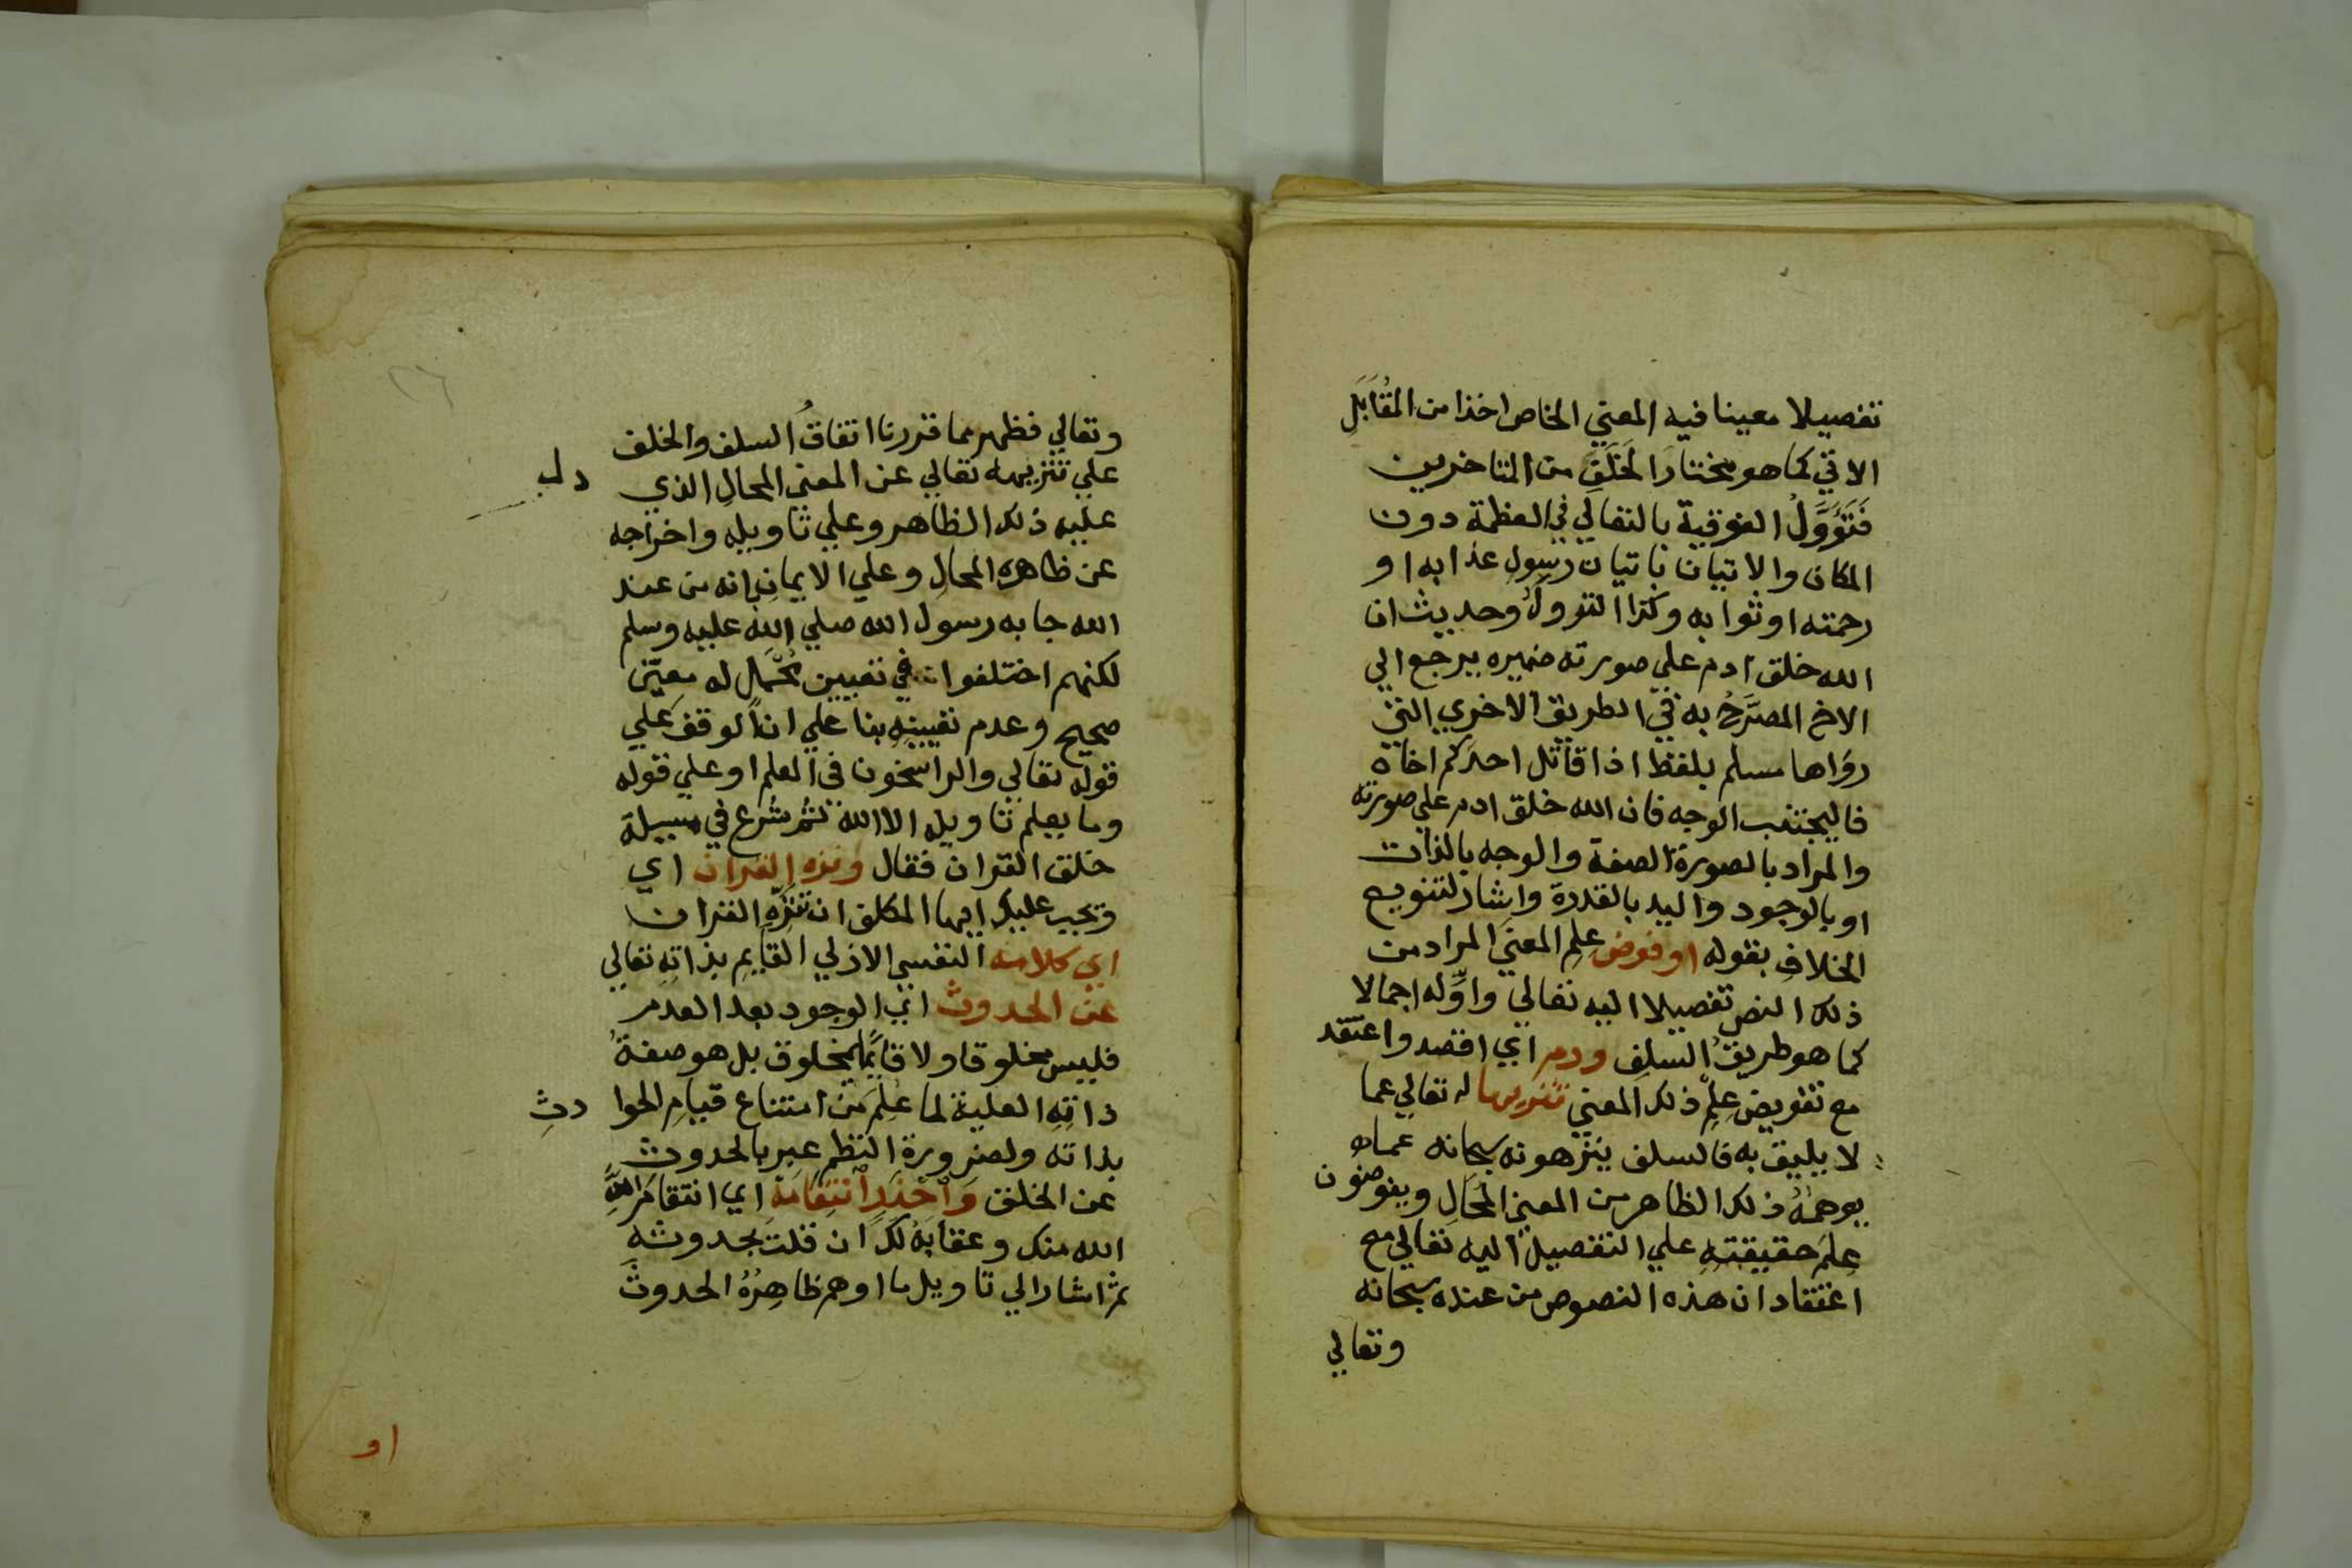 تفصيلا معينا فيه المعني الخاص اخذا من المُقَابَلِ
الاتي كما هو مختار الخلف من المتاخرين
فَتُؤَوَّلُ الفوقية بالتعالي في العظمة دون
المكان والاتيان باتيان رسول عذابه او
رحمته او ثوابه وكذا النزول وحديث ان
الله خلق ادم علي صورته ضميره يرجع الي
الاخ المصَرَّحُ به في الطريق الاخري التي
رواها مسلم بلفظ اذا قاتل احدكم اخاه
فاليجتنب الوجه فان الله خلق ادم علي صورته
والمراد بالصورة الصفة والوجه بالذات
او بالوجود واليد بالقدرة واشار لتنويع
الخلافِ بقوله او فوض علم المعني المراد من
ذلك النص تفصيلا اليه تعالي واوِّله اجمالا
كما هو طريقُ السلفِ ورم اي اقصد واعتقد
مع تفويض علمِ ذلك المعني تنزيها له تعالي عما
لا يليق به فالسلف ينزهونه سبحانه عما
يوهمُهُ ذلك الظاهر من المعني المُحَالِ ويفوضون
عِلمَ حقيقتهِ علي التفصيل اليه تعالي مع
اعتقاد ان هذه النصوص من عنده سبحانه
وتعالي
٢٦
وتعالي فظهر مما قررنا اتفاقُ السلف والخلف
علي تنزيهه تعالي عن المعني المحالِ الذي دل
عليه ذلك الظاهر وعلي تاويله واخراجه
عن ظاهره المحالِ وعلي الايمانِ بانه من عند
الله جا به رسول الله صلي الله عليه وسلم
لكنهم اختلفوا في تعيين مُحْمَلٍ له معيّن
صحيح وعدم تعيينهِ بنا علي ان الوقف علي
قوله تعالي والراسخون في العلم او علي قوله
وما يعلم تاويله الا الله ثم شرع في مسيلة
خلق القران فقال ونزه القران اي
ويجب عليك ايها المكلف ان تنزّه القران
اي كلامه النفسي الازلي القايمِ بذاتهِ تعالي
عن الحدوث اي الوجود بعد العدم
فليس مخلوقا ولا قايمًا بمخلوق بل هو صفةُ
ذاتِهِ العلية لما عُلِمَ من امتناع قيامِ الحوا دثِ
بذاته ولضرورة النظم عبر بالحدوث
عن الخلق وَاحْذَرِ انْتِقَامَهْ اي انتقام
الله منك وعقابَهُ لكَ ان قلتَ بحدوثهِ
ثم اشار الي تاويل ما اوهم ظاهِرُهُ الحدوثَ
او